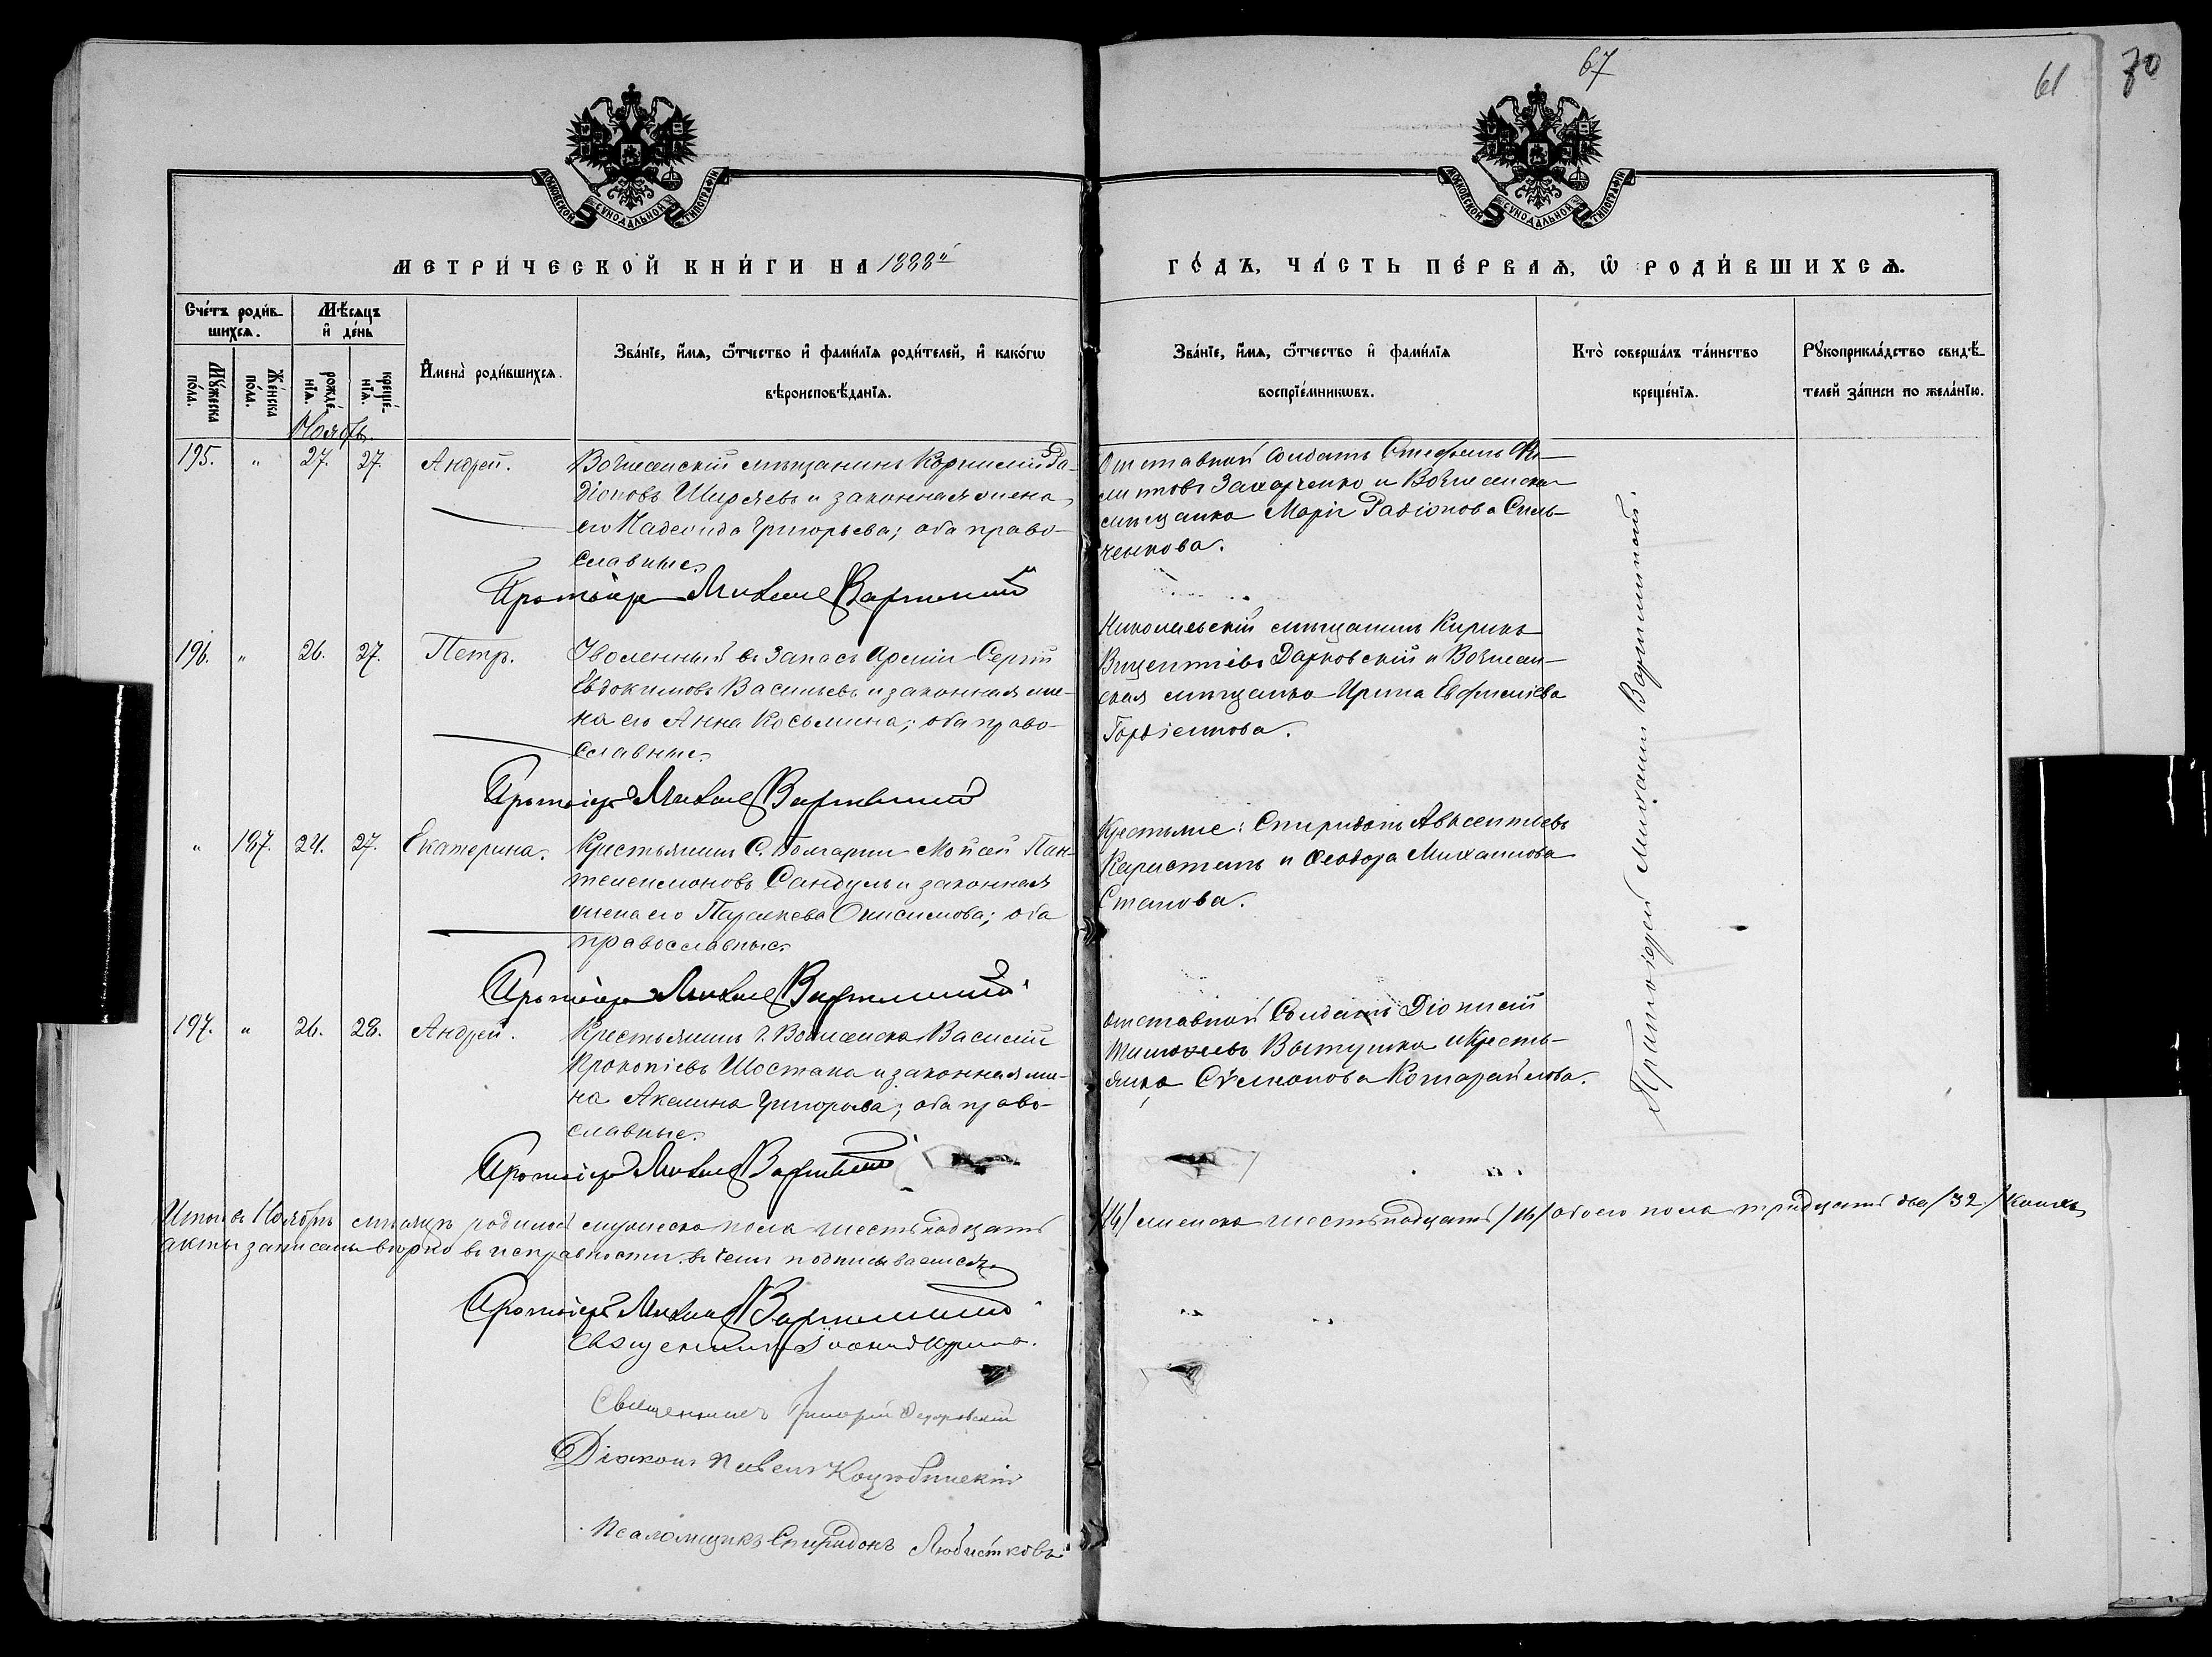 67
61
70
МОСКОВСКОЙ СѴНОДАЛЬНОЙ ТИПОГРАФІИ
МОСКОВСКОЙ СѴНОДАЛЬНОЙ ТИПОГРАФІИ
МЕТРИ́ЧЕСКОЙ КНИ́ГИ НА 1888й
ГО́ДЪ, ЧА́СТЬ ПЕ́РВАѦ, Ѡ҆ РОДИ́ВШИХСѦ.
Сче́тъ роди́вшихсѧ.
Мѣ́сѧцъ и҆ де́нь
Мꙋ́жеска по́ла.
Же́нска по́ла.
рожде́нїѧ.
креще́нїѧ.
И҆мена̀ роди́вшихсѧ.
Зва́нїе, и҆́мѧ, ѻ҆́тчество и҆ фами́лїѧ роди́телей, и҆ како́гѡ
вѣроисповѣ́данїѧ.
Зва́нїе, и҆́мѧ, ѻ҆́тчество и҆ фами́лїѧ
воспрїе́мникѡвъ.
Кто̀ соверша́лъ та́инство
креще́нїѧ.
Рꙋкоприкла́дство свидѣ́-
телей за́писи по жела́нїю.
Ноябрь.
195. " 27. 27. Андрей.
Вознесенскій мѣщанинъ Корнилій Ра-
діоновъ Ширяевъ и законная жена
его Надежда Григорьева; оба право-
славные.
Протоіерей Михаил Варшицкий
Отставной Солдатъ Стефанъ
Захарченко и Вознесенская
мѣщанка Марія Радіонова Силь-
ченкова.
196. " 26. 27. Петр.
Уволенный въ запасъ Арміи Сергій
Евдокимовъ Васильевъ и законная же-
на его Анна Косьмина; оба право-
славные.
Протоіерей Михаил
Николаевскій мѣщанинъ Кирикъ
Викентіевъ Дарковскій и Вознесен-
ская мѣщанка Ирина Евфиміева
Гордіенкова.
" 197. 24. 27. Екатерина.
Крестьянинъ С. Болгарки Мойсей Пан-
телеимоновъ Сандулъ и законная
жена его Параскева Онисимова; оба
православные.
Протоіерей Михаил
Крестьяне: Спиридонъ Авксентіевъ
и Ѳеодора Михаилова
Статова.
197. " 26. 28. Андрей.
Крестьянинъ г. Вознесенска Василій
Прокопіевъ Шостака и законная же-
на Акелина Григорьева; оба право-
славные.
Протоіерей Михаил
отставной Солдатъ Діонисій
и Кресть-
янка
Протоіерей Михаилъ
Итого въ Ноябрѣ мѣсяцѣ родилось мужеска пола шестьнадцать /16/ женска шестьнадцать /16/ обоего пола тридцать два /32/ коихъ
акты записаны вѣрно въ исправности. въ чемъ подписываемся
Протоіерей Михаил
Священникъ Іоаннъ
Священникъ Григорій Ѳедоровскій
Діаконъ Павелъ Коцюбинскій
Псаломщикъ Спиридонъ Любистковъ